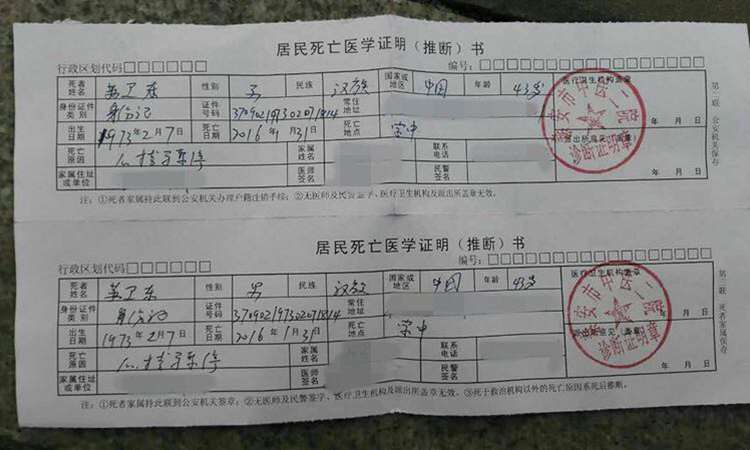 居民死亡医学证明（推断）书
行政区划代码□□□□□□ 编号：□□□□□□□□□□□□□□□□□
死者姓名 卫东 性别 男 民族 汉族 国家或地区 中国 年龄 43岁 医疗卫生机构盖章
身份证件类别 身份证 证件号码 370902197302071814 常住地址
出生日期 1973年2月7日 死亡日期 2016年1月31日 死亡地点 家中
死亡原因 家属姓名 联系电话 派出所意见（盖章）
家属住址或单位 医师签名 民警签名 年 月 日
泰安市中医二院
诊断证明章
年 月 日
注：①死者家属持此联到公安机关办理户籍注销手续；②无医师及民警签字、医疗卫生机构及派出所盖章无效。
第二联 公安机关保存
居民死亡医学证明（推断）书
行政区划代码□□□□□□ 编号：□□□□□□□□□□□□□□□□□
死者姓名 卫东 性别 男 民族 汉族 国家或地区 中国 年龄 43岁 医疗卫生机构盖章
身份证件类别 身份证 证件号码 370902197302071814 常住地址
出生日期 1973年2月7日 死亡日期 2016年1月31日 死亡地点 家中
死亡原因 家属姓名 联系电话 派出所意见（盖章）
家属住址或单位 医师签名 民警签名 年 月 日
泰安市中医二院
诊断证明章
年 月 日
注：①死者家属持此联到公安机关签章；②无医师及民警签字、医疗卫生机构及派出所盖章无效。③死于救治机构以外的死亡原因系死后推断。
第三联 死者家属保存